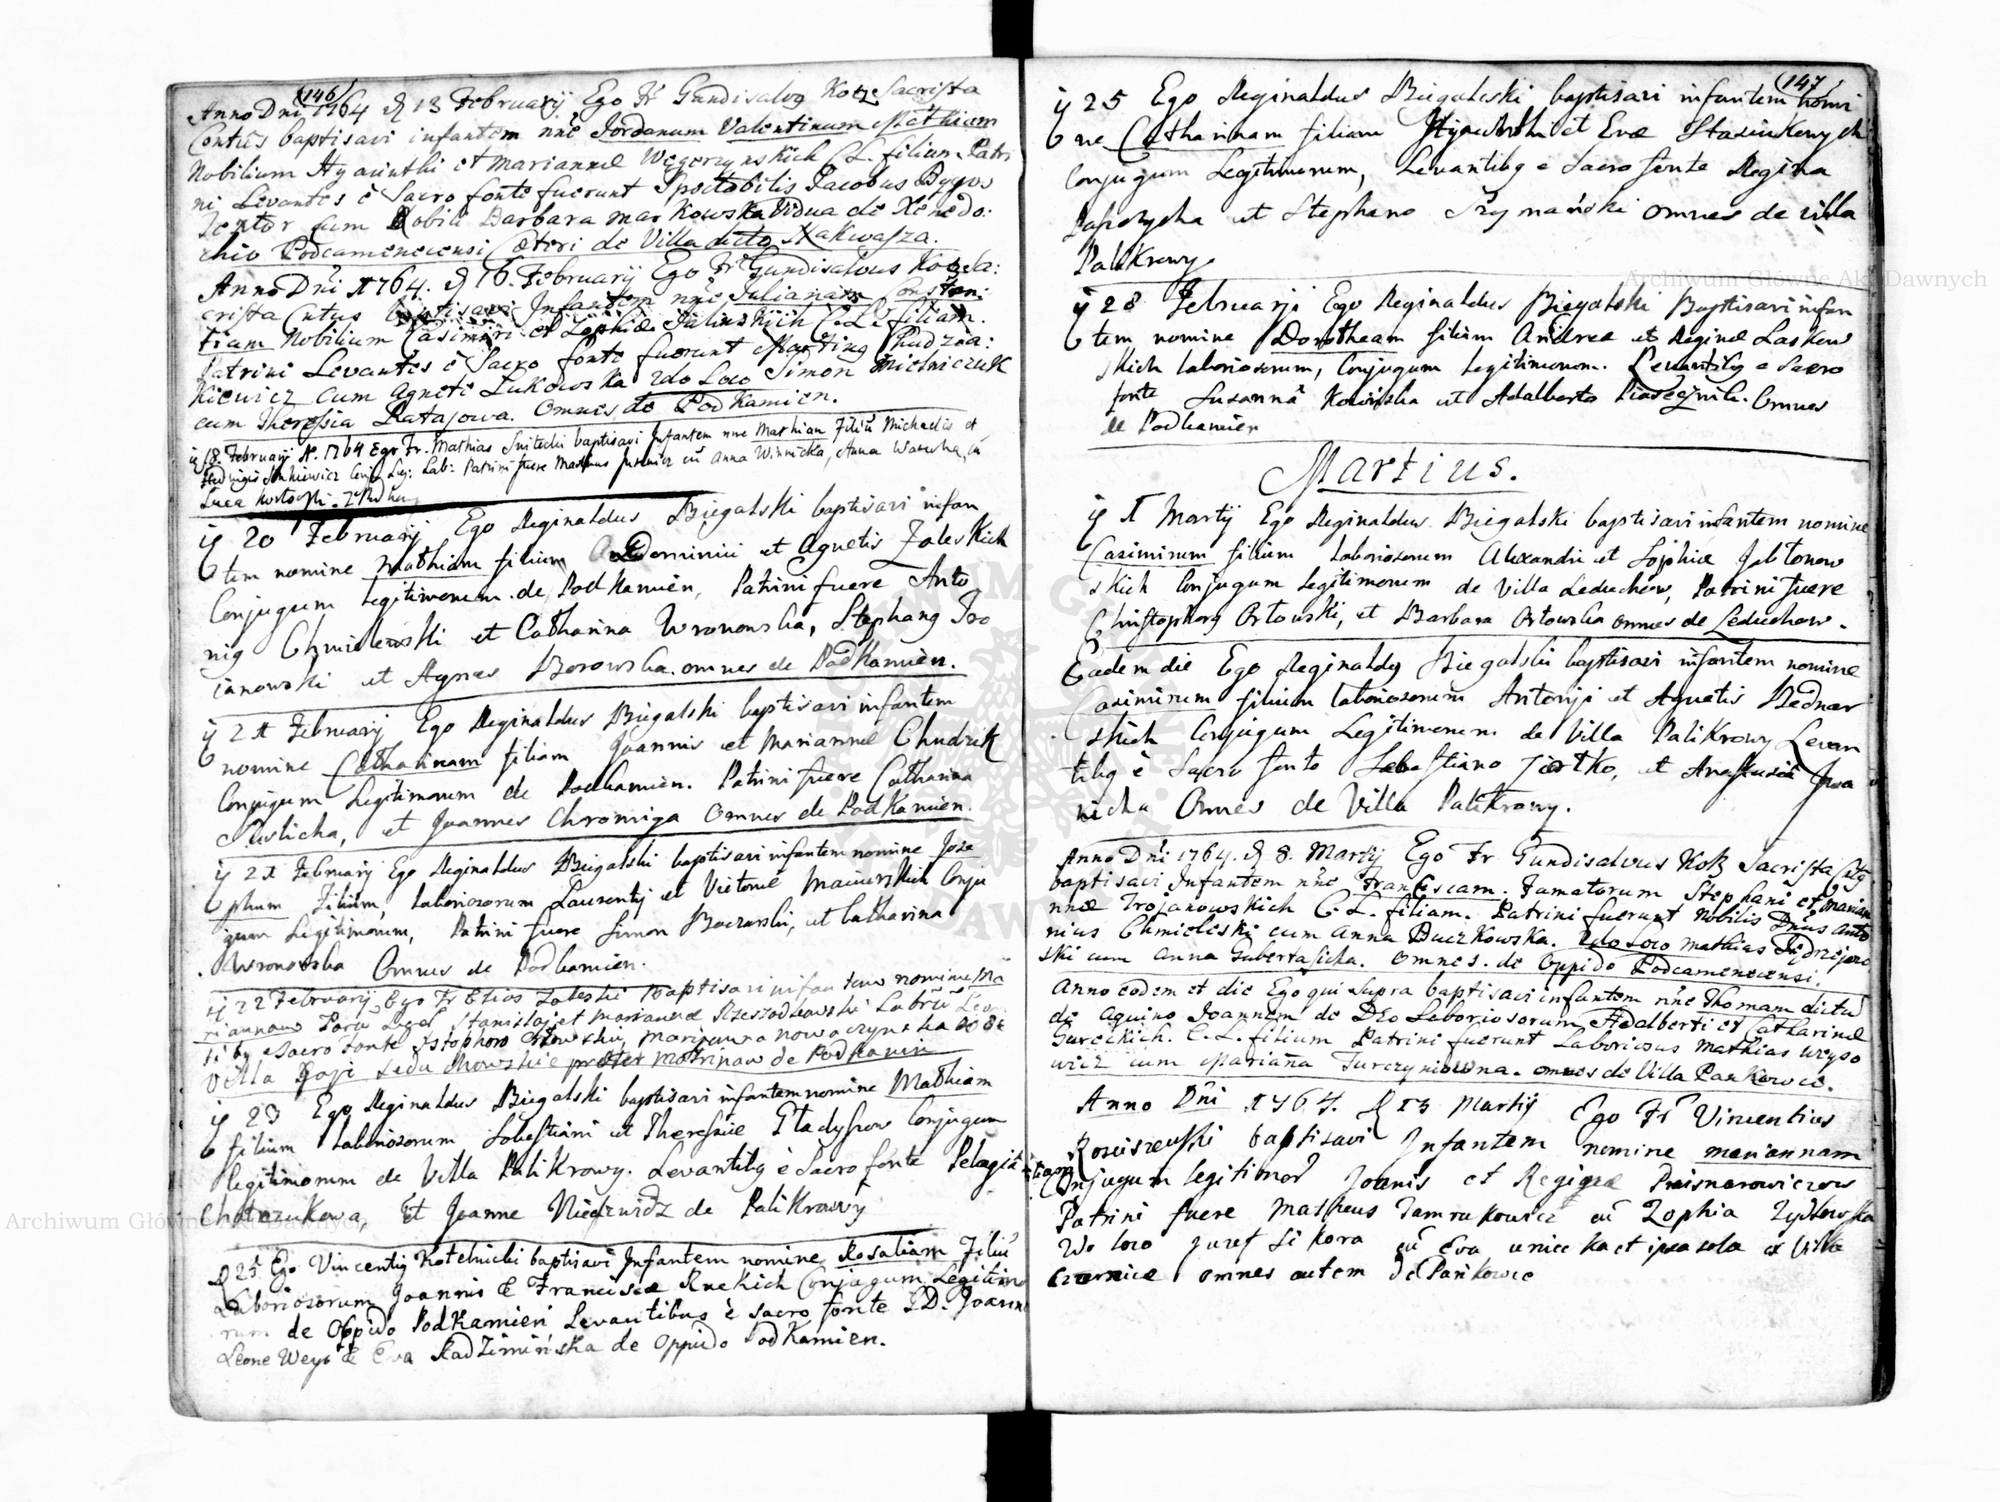 146
Anno Dni 1764 d 13 February Ego Fr Gundisalvg Kotz Sacrista
Contūs baptisavi infantem nñe Jordanum Valentinum Mathiam
Nobilium Hyacinthi et Mariannæ Węgerzynskich C. L. filium. Patri
ni Levantes è Sacro fonte fuerunt Spectabilis Jacobus
cum Nobili Barbara Markowska Vidua de
Podcamenecensi Cæteri de Villa dicto Nakwasza.
Anno Dni 1764. d 16. February Ego Fr Gundisalvus Kotz Sa:
crista Cntus baptisavi Infantem nñe Julianam Constan:
tiam Nobilium Casimiri et Zophiæ Julinskiich C. L. filiam.
Patrini Levantes è Sacro fonte fuerunt Marting Chudzia:
kiewicz cum Agnete Lukowska 2do Loco Simon Mielniczuk
cum Theresia Ratajowa. Omnes de Podkamien.
ij 18 February A. 1764 Ego Fr. Mathias Snitecki baptisavi Infantem nne Mathian Filiū Michaelis et
Hedvigis Senkiewicz Conj: Leg: Lab: Patrini fuere Mathias cū Anna Winnicka, Anna Warecka, cū
Luca
ij 20 February Ego Reginaldus Biegalski baptisavi infan
tem nomine Mathiam filium Dominici et Agnetis Zaleskich
Conjugum Legitimorum de Podkamien, Patrini fuere Anto
nig Chmielewski et Catharina Wronowska, Stephang Tro
ianowski et Agnes Borowska omnes de Podkamien.
ij 21 February Ego Reginaldus Biegalski baptisavi infantem
nomine Catharinam filiam Joannis et Mariannæ Chudzik
Conjugum Legitimorum de Podkamien. Patrini fuere Catharina
Suslicha, et Joannes Chromiga omnes de Podkamien.
ij 21 February Ego Reginaldus Biegalski baptisavi infantem nomine Jose
phum Filium, Laboriosorum Laurentij et Victoriæ Maiewskich Conju
gum Legitimorum, Patrini fuere Simon Boczarski, et Catharina
Wronowska Omnes de Podkamien.
ij 22 February Ego Fr Elios Zaleski Baptisavi infantem nomine Ma
riannam Stanislaj et Mariannæ Labrū Levan
tibg e Sacro Fonte Marianna Nowoczynska
Villa præter Matrinam de Podkamin
ij 23 Ego Reginaldus Biegalski baptisavi infantem nomine Mathiam
filium Laboriosorum Sebestiani et Theresiæ Gladyszow Conjugum
legitimorum de Villa Palikrowy. Levantibg è Sacro fonte Pelagia
Chotzukowa, Et Joanne Niedzwidz de Palikrowy
d 25 Ego Vincentig Kotelnicki baptisavi Infantem nomine Rosaliam Filiū
Laboriosorum Joannis & Franciscæ Conjugum Legitimo
rum de Oppido Podkamien Levantibus è sacro fonte G. D. Joanne
Leone Weys & Eva Radziminska de Oppido Podkamien.
147
ij 25 Ego Reginaldus Biegalski baptisavi infantem nomi
ne Catharinam filiam Hyacinthi et Evæ Stasiukowych
Conjugum Legitimorum, Levantibg e Sacro fonte Regina
et Stephano Szymański omnes de villa
Palikrowy.
ij 28 Februarji Ego Reginaldus Biegalski Baptisavi infan
tem nomine Dorotheam filiam Andrea et Reginæ Laskow
skich laboriosorum, Conjugum Legitimorum. Levantibg e Sacro
fonte Susannā Kowirska et Adalberto Piasegnik. Omnes
de Podkamien
Martius.
ij 1 Martij Ego Reginaldus Biegalski baptisavi infantem nomine
Casimirum filium Laboriosorum Alexandri et Sophiæ Jablonow
skich Conjugum Legitimorum de Villa Leduchow, Patrini fuere
Christophorg Orlowski, et Barbara Orlowska omnes de Leduchow.
Eadem die Ego Reginaldg Biegalski baptisavi infantem nomine
Casimirum filium laboriosorum Antonij et Agnetis Bednar
skich Conjugum Legitimorum de Villa Palikrowy Levan
tibg è Sacro fonte Sebestiano Jestko, et Anastasia Jwa
nicha Omnes de Villa Palikrowy.
Anno Dni 1764. d 8. Martij Ego Fr Gundisalvus Kotz Sacrista Cntg
baptisavi Infantem nñe Franciscam. Famatorum Stephani et Marian
næ Trojanowskich C. L. filiam. Patrini fuerunt Nobilis Dnus Anto
nius Chmieleski cum Anna Buczkowska. 2do Loco Mathias
ski cum Anna Gubertasicha. Omnes. de Oppido Podcamenecensi.
Anno eodem et die Ego qui supra baptisavi infantem nñe Thomam dictū
de Aquino Joannem de Deo Laboriosorum Adalberti et Catharinæ
Gureckich. C. L. filium Patrini fuerunt Laboriosus Mathias Weyso
wicz cum Mariāna Turczyniowna. omnes de Villa Pankowce.
Anno Dni 1764. d 13 Martij Ego Fr Vincentius
baptisavi Infantem nomine Mariannam filiam
Conjugum legitimor Joanis et Reginæ Paisnarowiczow
Patrini fuere Matheus Jamrukowicz cū Zophia Zydkowska
2do loco Juzef Sikora cū Eva et ipsa sola ex Villa
Czernica omnes autem de Pankowce
Archiwum Główne Akt Dawnych
Archiwum Główne Akt Dawnych
ARCHIWUM GŁÓWNE AKT DAWNYCH